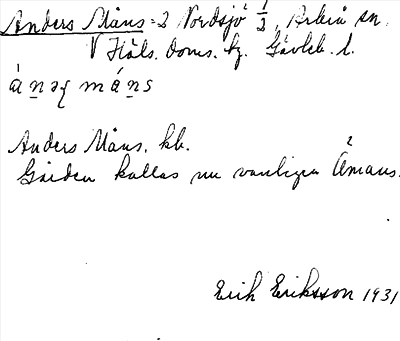 Anders Måns = 2 Nordsjö 1/2, Arbrå sn.
V Häls. doms. hg. Gävleb. l.
máns
Anders Måns. kb.
Gården kallas nu vanligen Åmans.
Erik Eriksson 1931